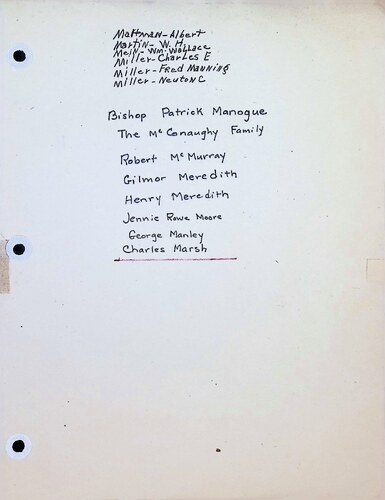 Maltman-Albert
Martin- W. H.
Mein- Wm. Wallace
Miller-Charles E
Miller-Fred Manning
Miller-Newton C
Bishop Patrick Manogue
The McConaughy Family
Robert McMurray
Gilmor Meredith
Henry Meredith
Jennie Rowe Moore
George Manley
Charles Marsh